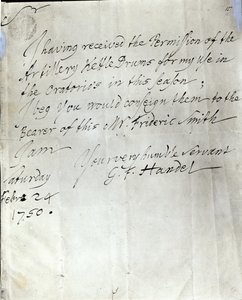 I having received the Permission of the
Artillery Kettle Drums for my use in
the Oratorio's in this season;
I beg you would consign them to the
Bearer of this Mr. Frideric Smith
I am
Your very humble Servant
G. F. Handel
Saturday
Febr: 24
1750.